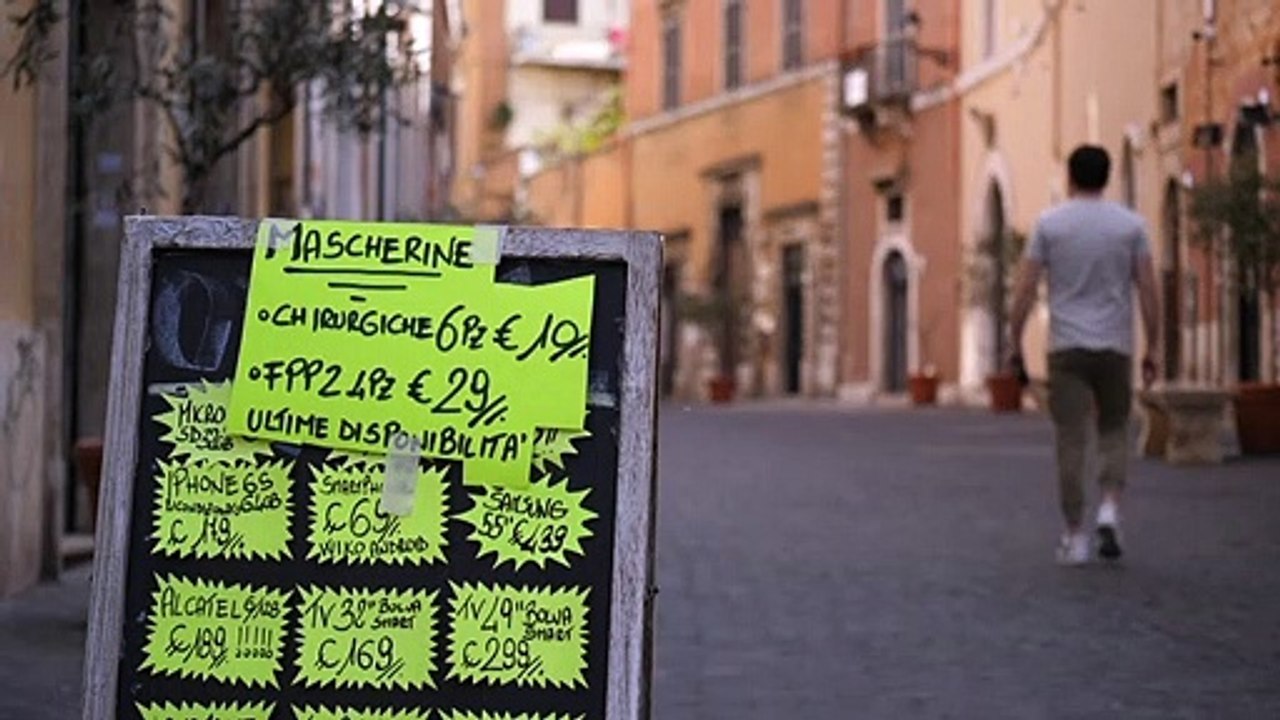 MASCHERINE
•CHIRURGICHE 6Pz € 19/.
•FPP2 4Pz € 29/.
ULTIME DISPONIBILITA'
MICRO
SD
IPHONE 6S
64GB
€ 179/.
SMARTPH
€ 69/.
WIKO ANDROID
SAMSUNG
55" € 439
ALCATEL
€ 189 !!!!!
TV 32" BOLVA
SMART
€ 169/.
TV 49" BOLVA
SMART
€ 299/.